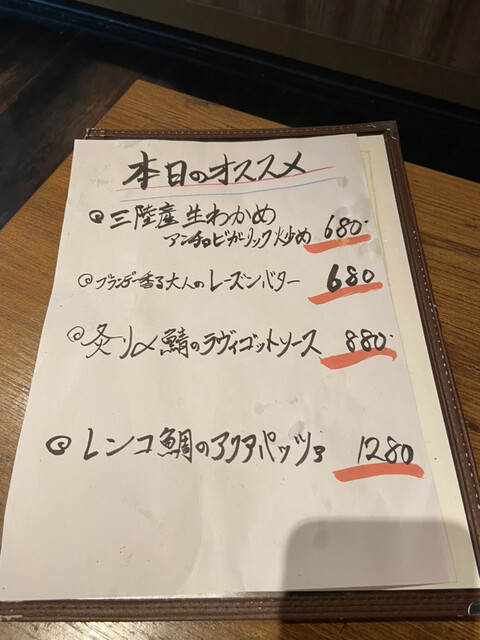 本日のオススメ
三陸産生わかめ
アンチョビガーリック炒め 680-
ブランデー香る大人のレーズンバター 680
炙り〆鯖のラヴィゴットソース 880-
レンコ鯛のアクアパッツァ 1280